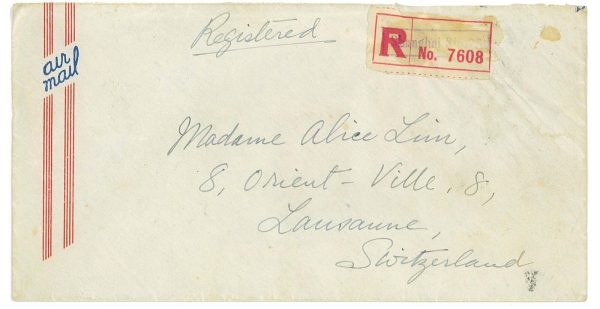 Registered
R
No. 7608
air
mail
Madame Alice Lim,
8, Orient-Ville, 8,
Lausanne,
Switzerland